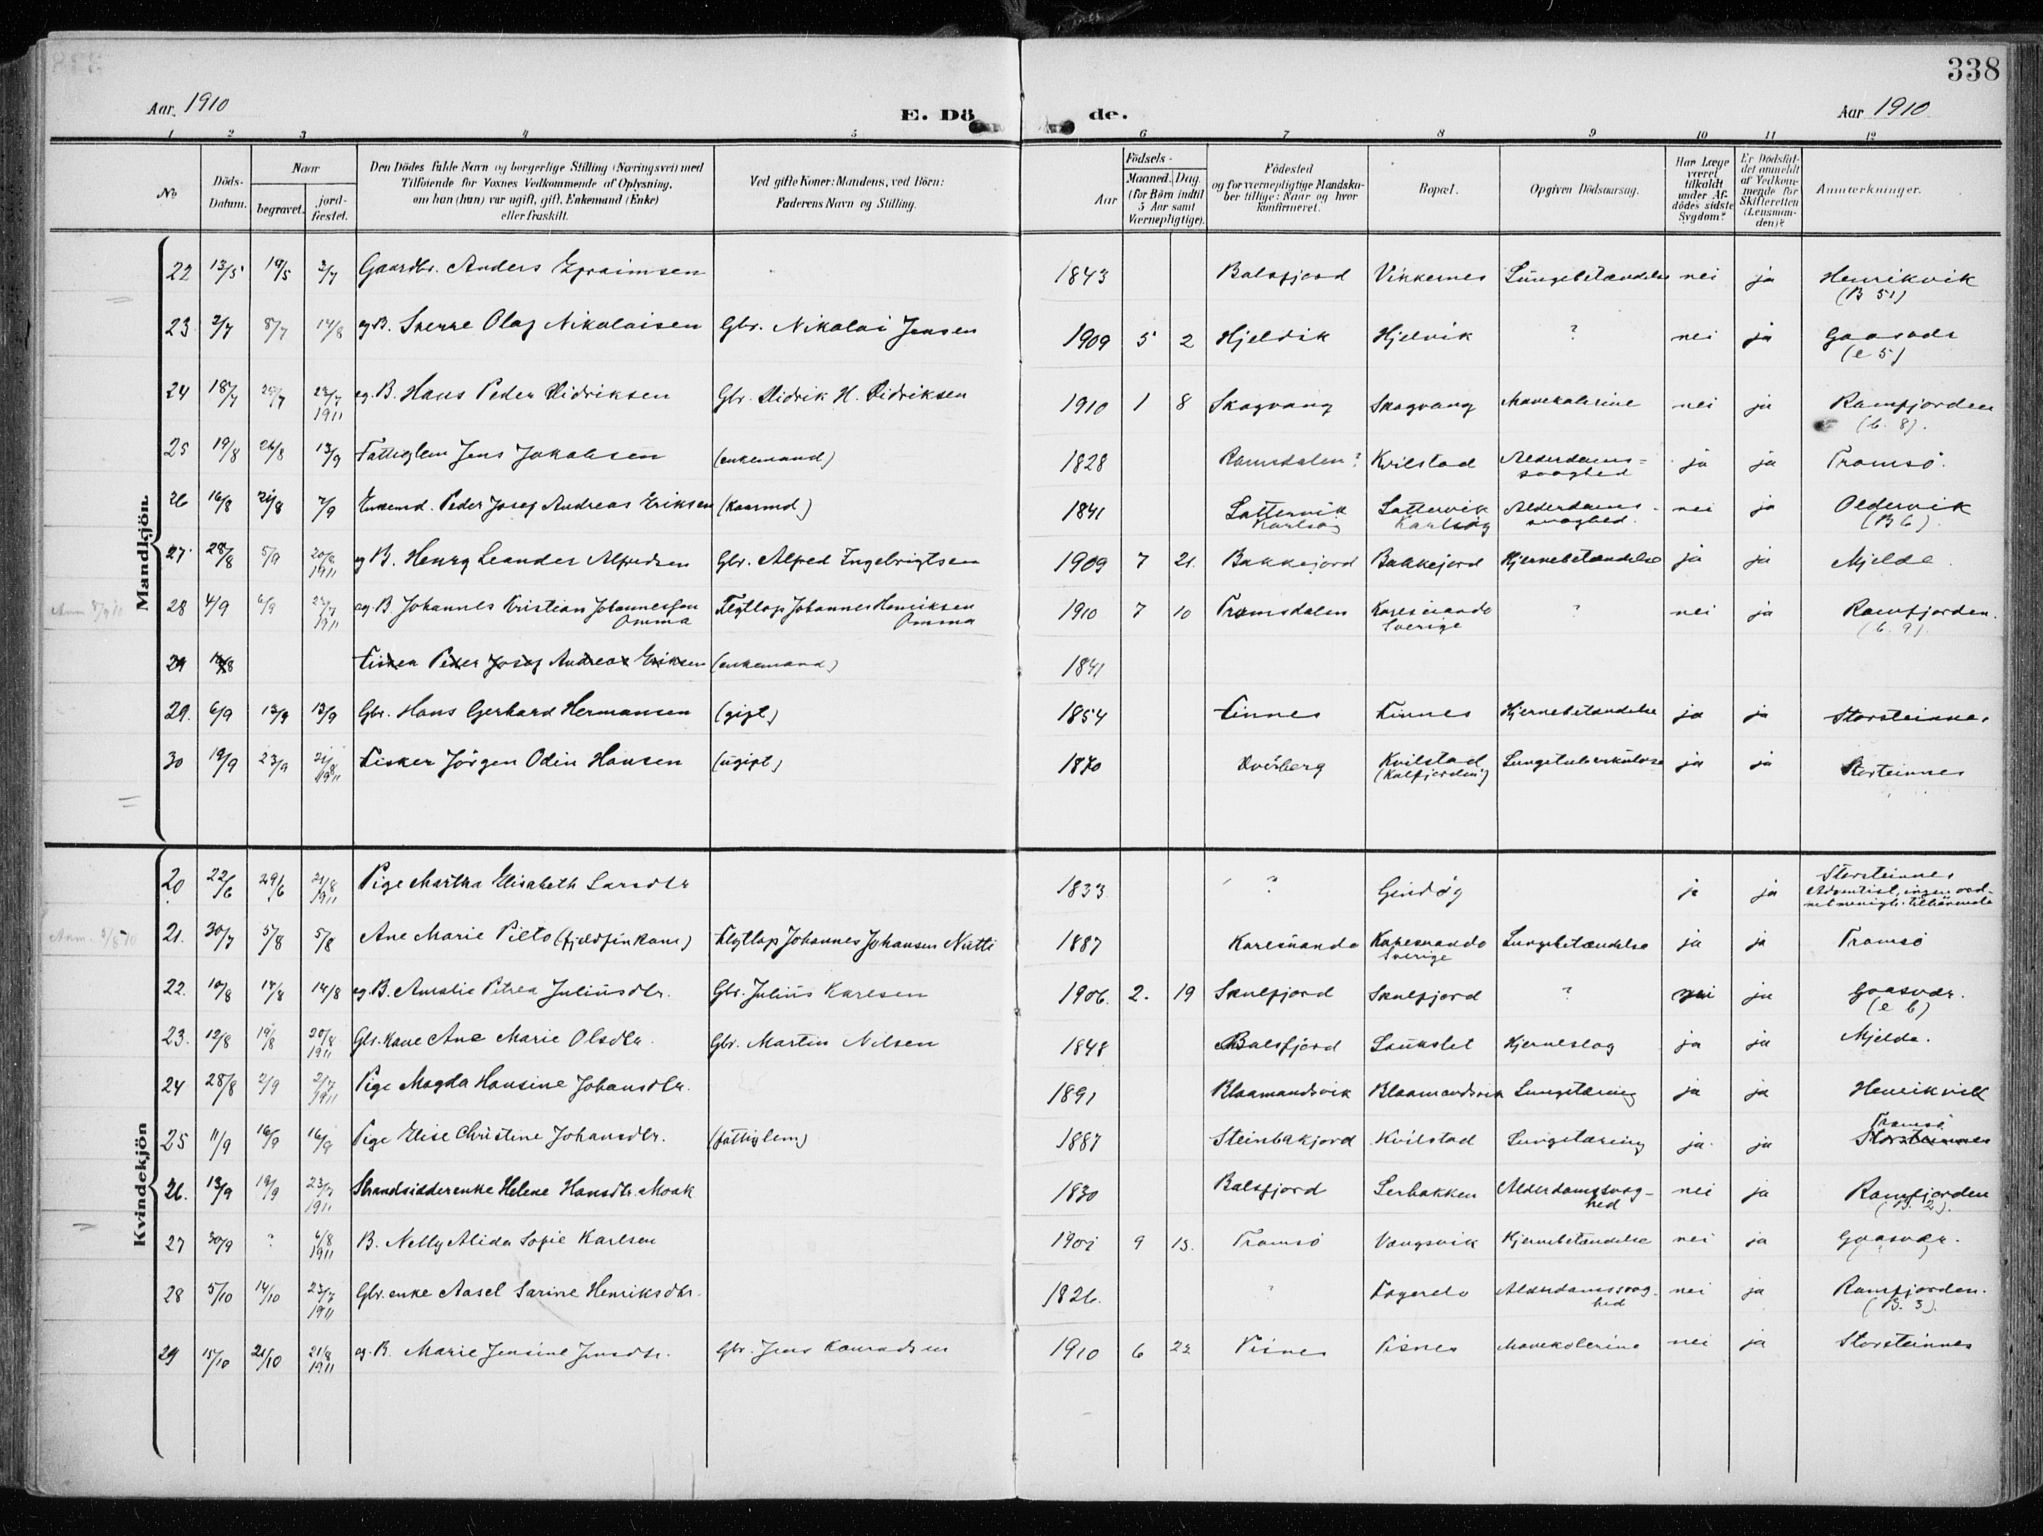 338
Aar 1910 E. Dö de. Aar 1910
1 2 3 4 5 6 7 8 9 10 11 12
No
Döds-Datum.
Naar
begravet.
jord-fæstet.
Den Dödes fulde Navn og borgerlige Stilling (Næringsvei) med
Tilföiende for Voxnes Vedkommende af Oplysning,
om han (hun) var ugift, gift, Enkemand (Enke)
eller fraskilt.
Ved gifte Koner: Mandens, ved Börn:
Faderens Navn og Stilling.
Födsels-
Aar
Maaned. Dag.
(for Börn indtil
5 Aar samt
Værnepligtige).
Födested
og for værnepligtige Mandska-
ber tillige: Naar og hvor
konfirmeret.
Bopæl.
Opgiven Dödsaarsag.
Har Læge
været
tilkaldt
under Af-
dödes sidste
Sygdom?
Er Dödsfal-
det anmeldt
af Vedkom-
mende for
Skifteretten
(Lensman-
den)?
Anmerkninger.
Mandkjön.
22 13/5 19/5 3/7 Gaardbr. Anders Epraimsen 1843 Balsfjord Vikkernes Lungebetændelse nei ja Henrikvik
(B 51)
23 2/7 8/7 14/8 eg B. Sverre Olaf Nikolaisen Gbr. Nikolai Jensen 1909 5 2 Hjelvik Hjelvik ? nei ja Gaasvær
(e 5)
24 18/7 23/7 1911 eg. B. Hans Peder Didriksen Gbr. Didrik H. Didriksen 1910 1 8 Skogvang Skogvang Mavekolerine nei ja Ramfjorden
(b. 8).
25 19/8 26/8 13/9 Fattiglem Jens Jakobsen (enkemand) 1828 Ramsdalen? Kvilstad Alderdoms-
svaghed ja ja Tromsö.
26 16/8 21/8 7/9 Enkemd. Peder Josef Andreas Eriksen (Kaarmd) 1841 Lattervik
Karlsøy Lattervik
Karlsøy Alderdoms-
svaghed. nei ja Oldervik
(B 6).
27 28/8 5/9 20/8 1911 eg B. Henry Leander Alfredsen Gbr. Alfred Ingebrigtsen 1909 7 21. Bakkejord Bakkejord Hjernebetændelse ja ja Mjelde.
28 4/9 6/9 23/7 1911 eg B Johannes Kristian Johannessen
Omma Flytlap Johannes Henriksen
Omma 1910 7 10 Tromsdalen Karesuando
Sverige ? nei ja Ramfjorden.
(b. 9).
29 Fisker Peder Josef Andreas Eriksen (enkemand) 1841
29. 6/9 13/9 13/9 Gbr. Hans Gerhard Hermansen (gift) 1854 Finnes Finnes Hjernebetændelse ja ja Storsteinnes
30 19/9 23/9 21/8 1911 Fisker Jörgen Odin Hansen (ugift) 1870 Kvilstad
(Kalfjorden) Lungetuberkulose ja ja Storsteinnes
Kvindekjön
20 22/6 29/6 21/8 1911 Pige Martha Elisabeth Larsdtr 1833 ? Gindøg ja ja Storsteinnes
Adventist,
21. 30/7 5/8 5/8 Ane Marie Pilto (fjeldfinkone) Flytlap Johannes Johansen Nutti 1887 Karesuando Karesuando
Sverige Lungebetændelse ja ja Tromsö
22. 10/8 14/8 14/8 eg. B. Amalie Petrea Juliusdtr. Gbr. Julius Karlsen 1906. 2. 19 Skulfjord Skulfjord ? nei ja Gaasvær.
(e 6)
23. 12/8 19/8 20/8 1911 Gbr. kone Ane Marie Olsdtr. Gbr. Martin Nilsen 1848 Balsfjord Laukslet Hjerneslag ja ja Mjelde.
24 28/8 2/9 2/7 1911 Pige Magda Hansine Johansdtr. 1891 Blaamandsvik Blaamandsvik Lungetæring ja ja Henrikvik
25 11/9 16/9 16/9 Pige Elise Christine Johansdtr. (fattiglem) 1887 Steinbakjord Kvilstad Lungetæring ja ja Tromsö
Storsteinnes
26. 13/9 19/9 23/7 1911 Strandsidderenke Helene Hansdtr. Moak 1830 Balsfjord Lerbakken Alderdomssvag-
hed nei ja Ramfjorden
(B. 2).
27 30/9 ? 6/8 1911 B. Nelly Alida Sofie Karlsen 1907 9 13. Tromsö Vangsvik Hjernebetændelse nei ja Gaasvær.
28 5/10 14/10 23/7 1911 Gbr. enke Aasel Sarine Henriksdtr. 1826. ? Fagerelv Alderdomssvag-
hed nei ja Ramfjorden.
(B. 3).
29 15/10 21/10 21/8 1911 eg. B. Marie Jensine Jensdtr. Gbr. Jens Konradsen 1910 6 22 Visnes Visnes Mavekolerine nei ja Storsteinnes